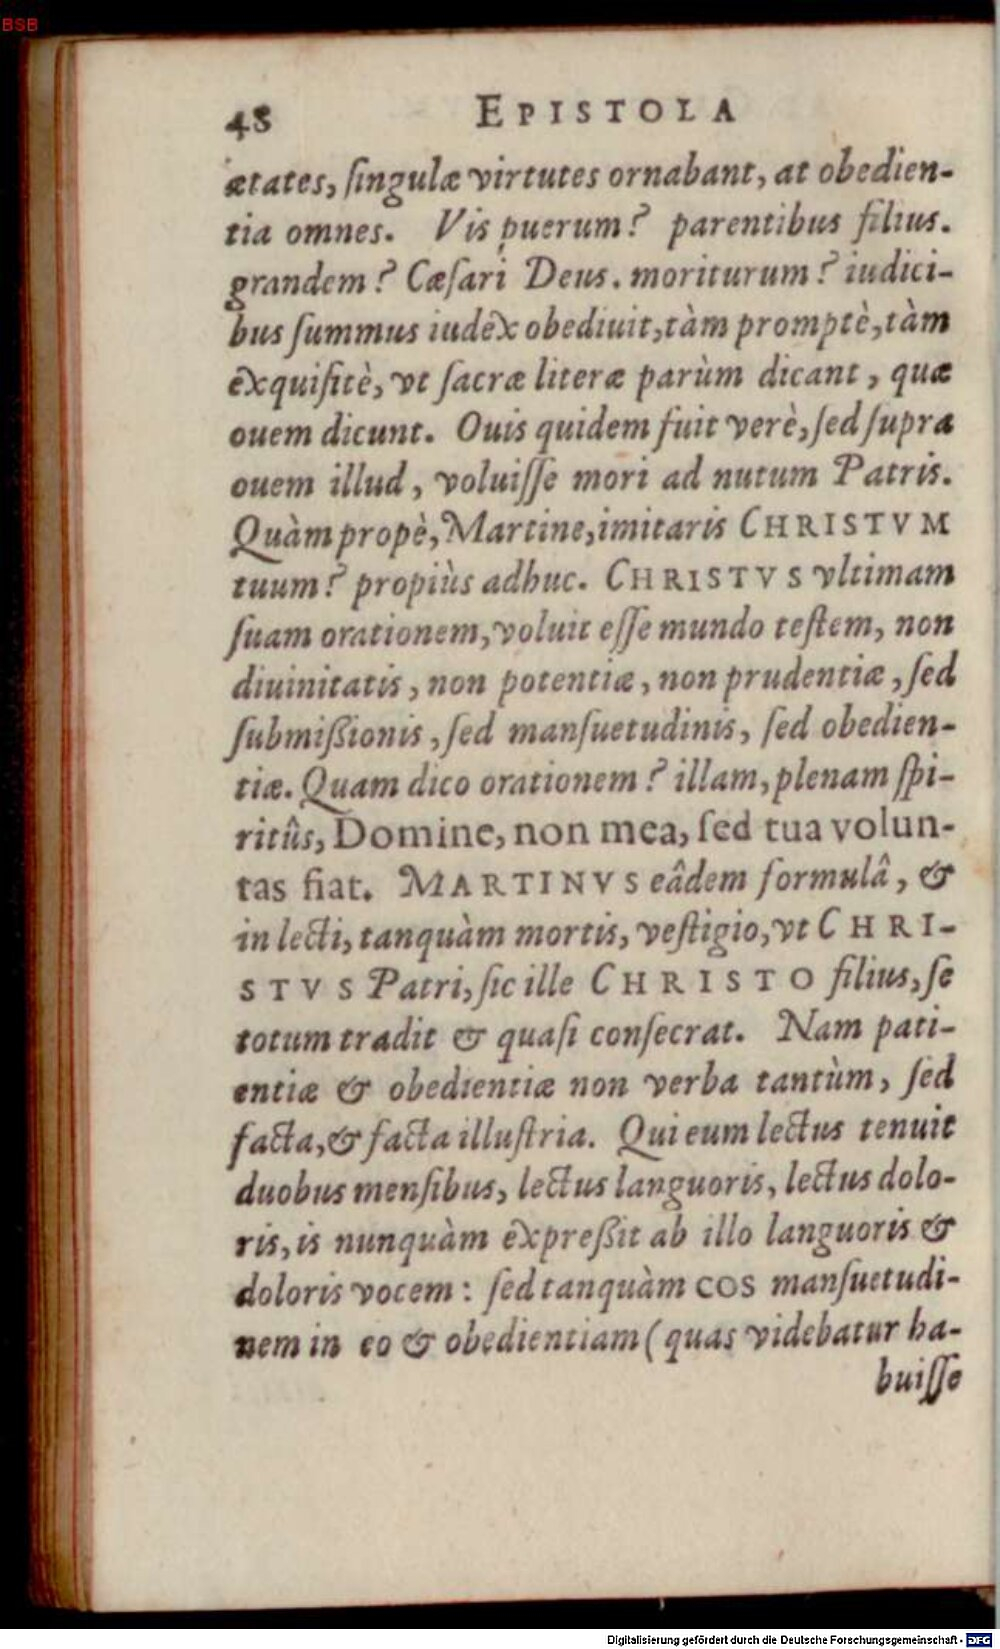 BSB
48 EPISTOLA
ætates, ſingulæ virtutes ornabant, at obedien-
tia omnes. Vis puerum? parentibus filius.
grandem? Cæſari Deus. moriturum? iudici-
bus ſummus iudex obediuit, tàm promptè, tàm
exquiſitè, vt ſacræ literæ parùm dicant, quæ
ouem dicunt. Ouis quidem fuit verè, ſed ſupra
ouem illud, voluiſſe mori ad nutum Patris.
Quàm propè, Martine, imitaris CHRISTVM
tuum? propiùs adhuc. CHRISTVS vltimam
ſuam orationem, voluit eſſe mundo teſtem, non
diuinitatis, non potentiæ, non prudentiæ, ſed
ſubmiſsionis, ſed manſuetudinis, ſed obedien-
tiæ. Quam dico orationem? illam, plenam ſpi-
ritûs, Domine, non mea, ſed tua volun-
tas fiat. MARTINVS eâdem formulâ, &
in lecti, tanquàm mortis, veſtigio, vt CHRI-
STVS Patri, ſic ille CHRISTO filius, ſe
totum tradit & quaſi conſecrat. Nam pati-
entiæ & obedientiæ non verba tantùm, ſed
facta, & facta illuſtria. Qui eum lectus tenuit
duobus menſibus, lectus languoris, lectus dolo-
ris, is nunquàm expreſsit ab illo languoris &
doloris vocem: ſed tanquàm COS manſuetudi-
nem in eo & obedientiam (quas videbatur ha-
buiſſe
Digitalisierung gefördert durch die Deutsche Forschungsgemeinschaft - DFG